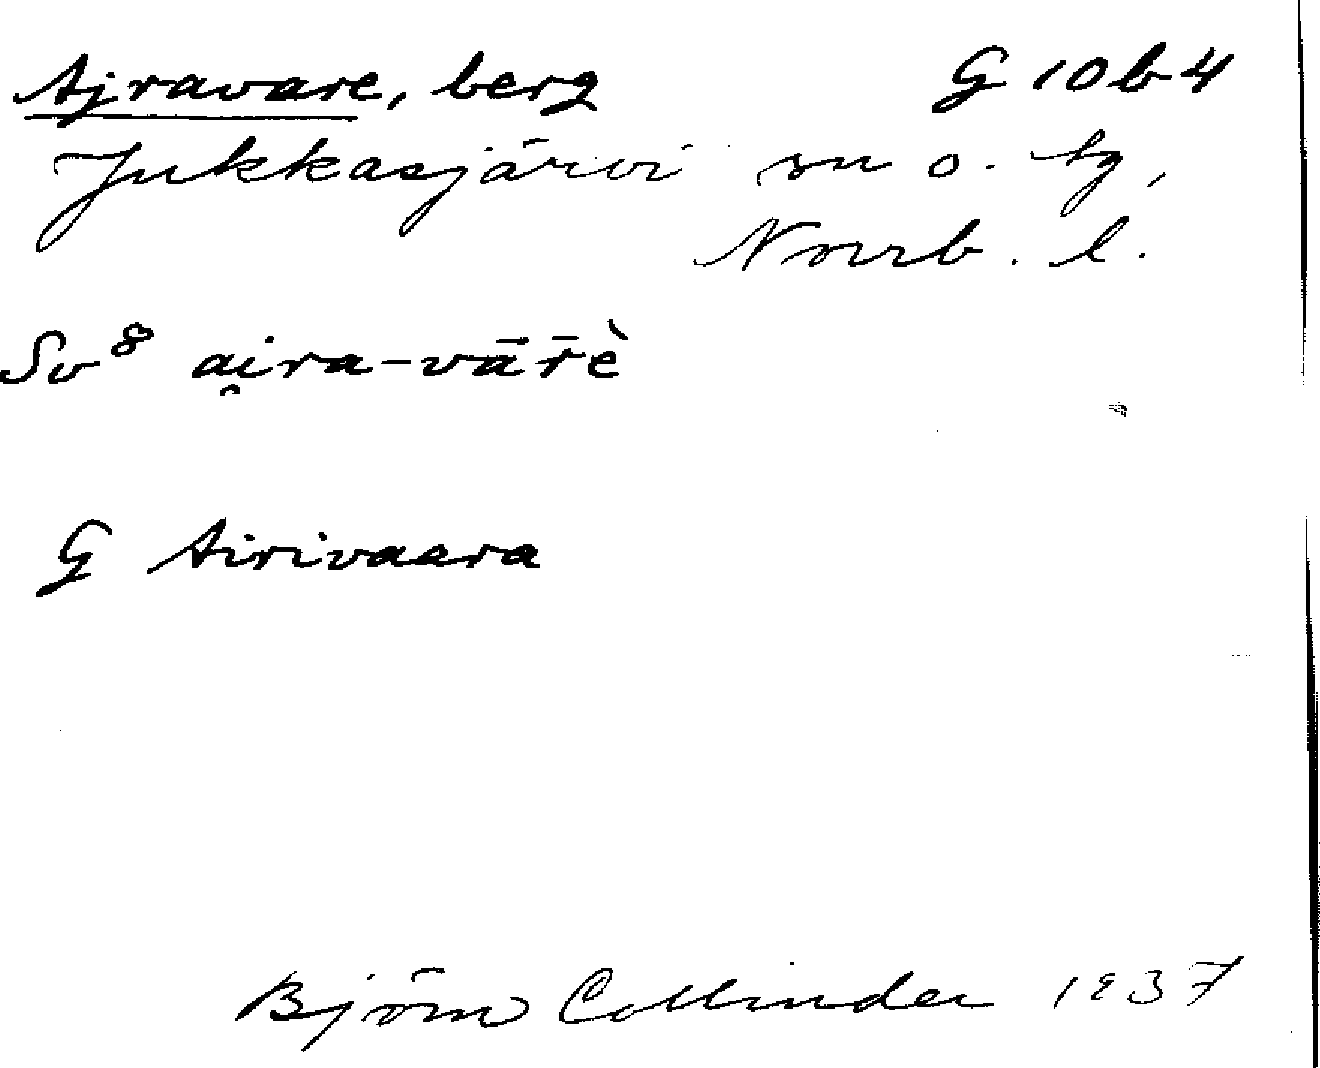 Ajravare, berg G 10 b 4
Jukkasjärvi sn o. tg,
Norrb. l.
Sv⁸ ai̯ra-vārè̄
G Airivaara
Björn Collinder 1937